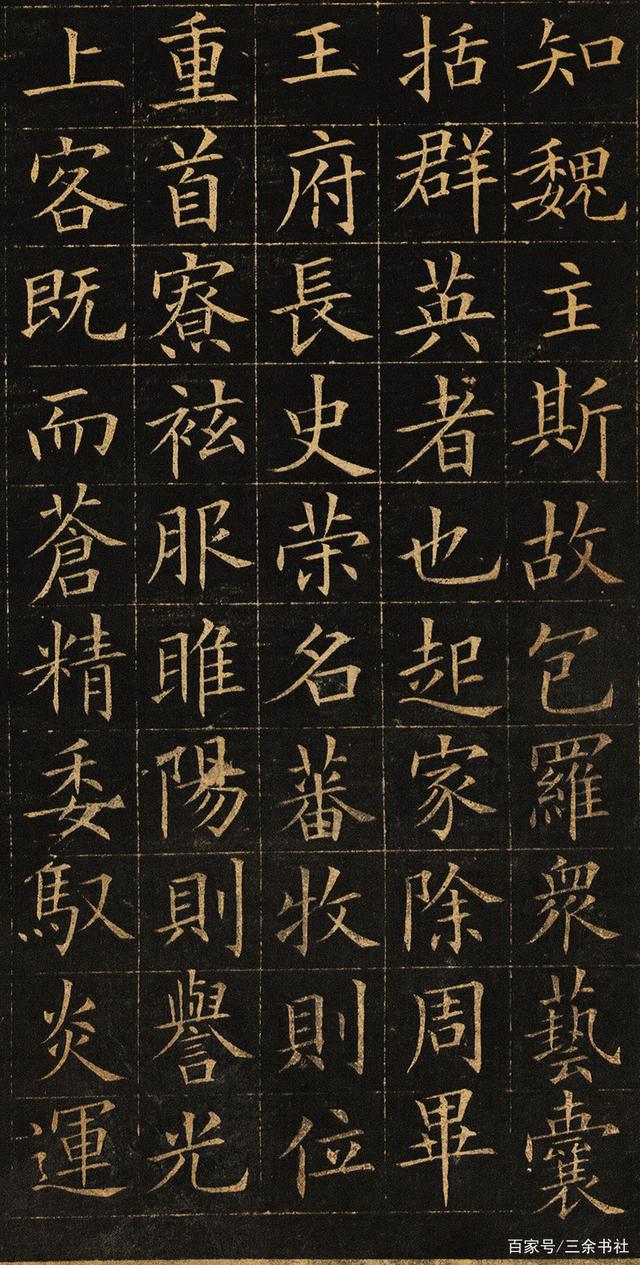 知魏主斯故包羅衆藝囊
括群英者也起家除周畢
王府長史荣名蕃牧則位
重首寮袨服睢陽則譽光
上客既而蒼精委馭炎運
百家号/三余书社